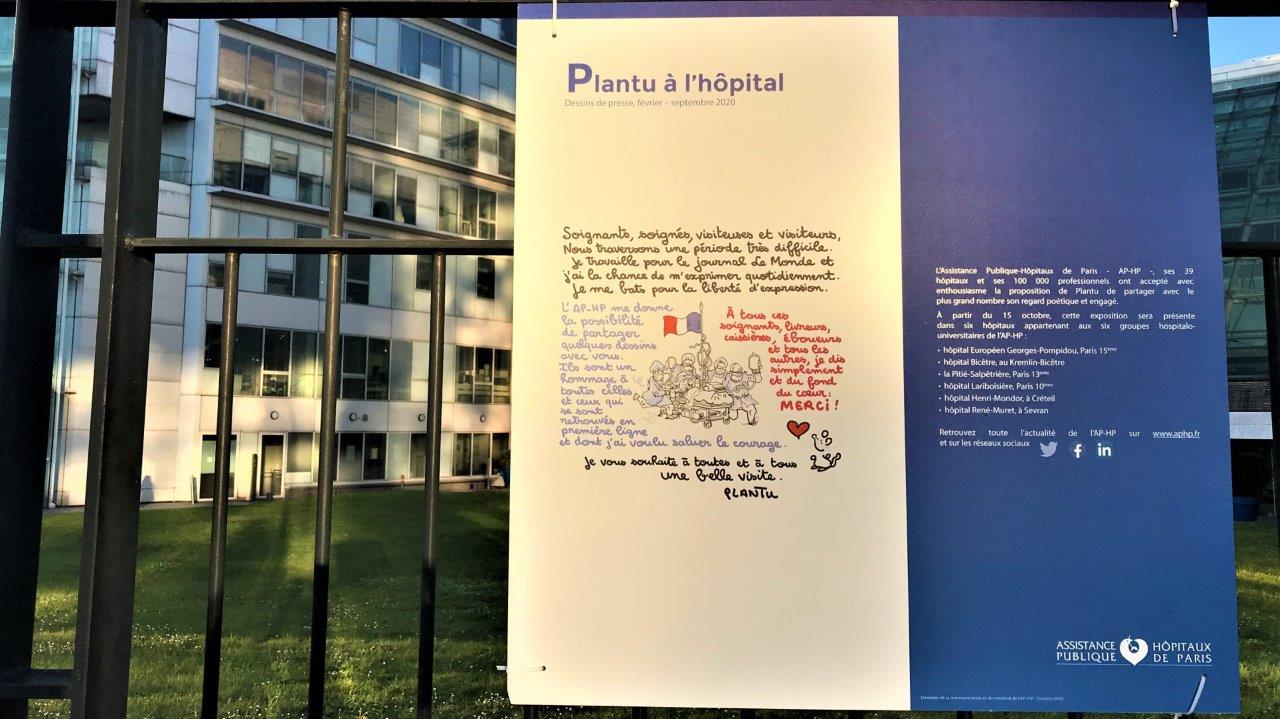 Plantu à l'hôpital
Dessins de presse, février – septembre 2020
Soignants, soignés, visiteuses et visiteurs,
Nous traversons une période très difficile.
Je travaille pour le journal Le Monde et
j'ai la chance de m'exprimer quotidiennement.
Je me bats pour la liberté d'expression.
L'AP-HP me donne
la possibilité
de partager
quelques dessins
avec vous.
Ils sont un
hommage à
toutes celles
et ceux qui
se sont
retrouvés en
première ligne
et dont j'ai voulu saluer le courage.
À tous ces
soignants, livreurs,
caissières, éboueurs
et tous les
autres, je dis
simplement
et du fond
du cœur :
MERCI !
Je vous souhaite à toutes et à tous
une belle visite.
PLANTU
L'Assistance Publique-Hôpitaux de Paris - AP-HP -, ses 39
hôpitaux et ses 100 000 professionnels ont accepté avec
enthousiasme la proposition de Plantu de partager avec le
plus grand nombre son regard poétique et engagé.
À partir du 15 octobre, cette exposition sera présente
dans six hôpitaux appartenant aux six groupes hospitalo-
universitaires de l'AP-HP :
• hôpital Européen Georges-Pompidou, Paris 15ème
• hôpital Bicêtre, au Kremlin-Bicêtre
• la Pitié-Salpêtrière, Paris 13ème
• hôpital Lariboisière, Paris 10ème
• hôpital Henri-Mondor, à Créteil
• hôpital René-Muret, à Sevran
Retrouvez toute l'actualité de l'AP-HP sur www.aphp.fr
et sur les réseaux sociaux
ASSISTANCE HÔPITAUX
PUBLIQUE DE PARIS
Direction de la communication et du mécénat de l'AP-HP - Octobre 2020